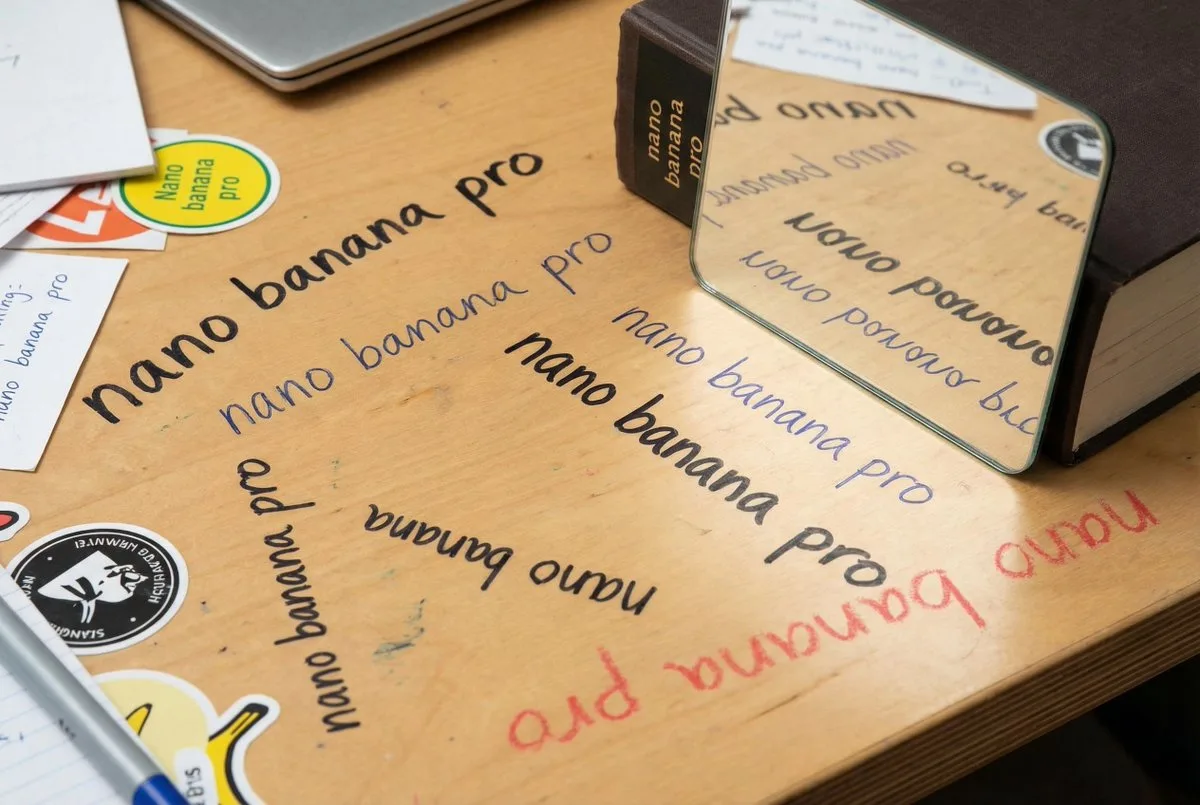 Nano
banana
pro
nano banana pro
nano banana pro
nano banana pro
nano banana pro
nano banana pro
nano banana pro
nano banana
nano banana pro
nano
banana
pro
nano banana pro
nano ba
nano banana
nano banana
nano banana